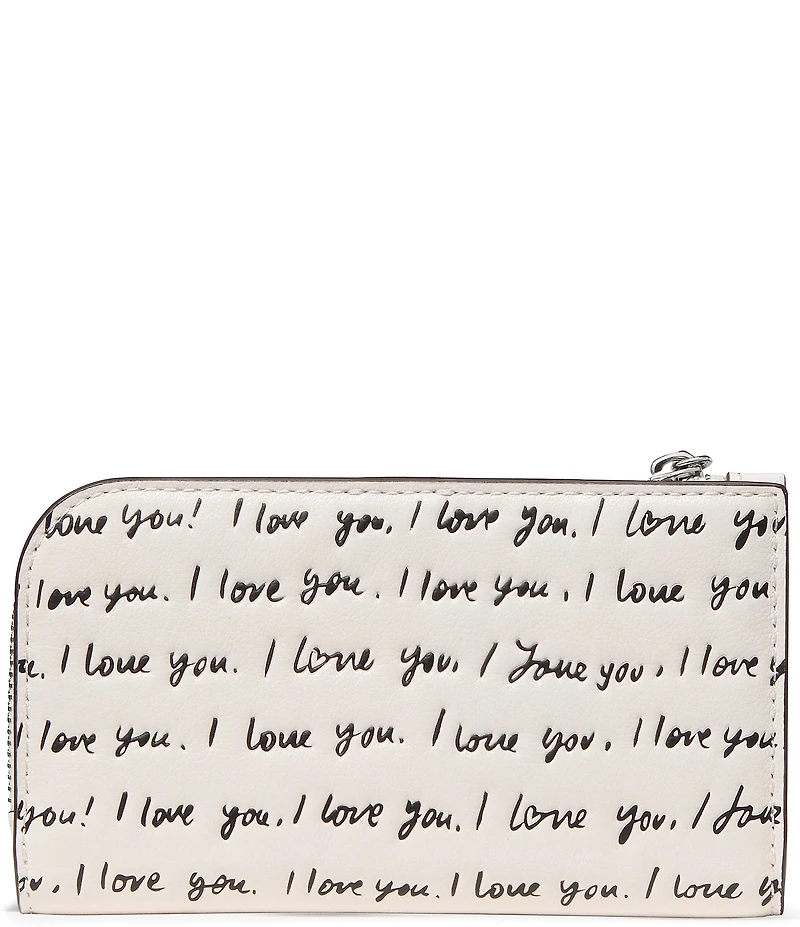 love you! I love you. I love you. I love you
I love you. I love you. I love you. I love you
I love you. I love you. I love you. I love y
I love you. I love you. I love you. I love you.
you! I love you. I love you. I love you. I love
I love you. I love you. I love you. I love y